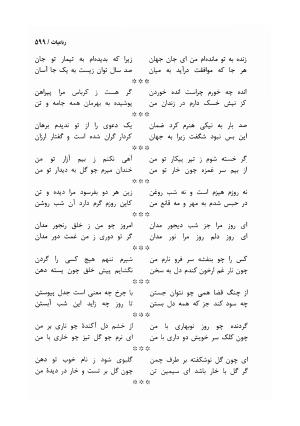 رباعیات / ۵۹۹
زنده به تو مانده‌ام من ای جان جهان زیرا که بدیده‌ام به تیمار تو جان
هر جا که موافقت درآید به میان صد سال توان زیست به یک جا آسان
***
انده چه خورم چراست انده خوردن گر هست ز کرباس مرا پیراهن
کز نیش خسک دارم در زندان من پوشیده به بهرمان همه جامه و تن
***
صد بار به نیکی هنرم کرد ضمان یک دعوی را از تو ندیدم برهان
این بس نبود شگفت زیرا به جهان کردار گران شده است و گفتار ارزان
***
گر خسته شوم ز تیر پیکار تو من آهی نکنم ز بیم آزار تو من
از بیم سر غمزه چون خار تو من خندان میرم چو گل به دیدار تو من
***
نه روزم هیزم است و نه شب روغن زین هر دو بفرسود مرا دیده و تن
در حبس شدم به مهر و مه قانع من کاین روزم گرم دارد آن شب روشن
***
ای روز مرا جز شب دیجور مدان امروز چو من ز خلق رنجور مدان
ای روز دلم روز مرا نور مدان گر تو دوری ز من غمت دور مدان
***
کس را چو بنفشه سر فرو نارم من ننهم هیچ کسی را گردن
چون نار غم ارخون کندم دل به سخن نگشایم پیش خلق چون پسته دهن
***
از چنگ قضا همی چو نتوان جستن با چرخ چه معنی است جدل پیوستن
چه سود کند جز که همه دل بستن تا روز چه زاید این شب آبستن
***
گردنده چو روز نوبهاری با من از خشم دل آکندهٔ چو ناری بر من
چون کلک سر خویش دو داری با من ای نرم چو گل تیز چو خاری با من
***
ای چون گل نوشکفته بر طرف چمن گلبوی شود ز نام خوب تو دهن
گر گل با خار باشد ای سیمین تن چون گل بر تست و خار در دیدهٔ من
***